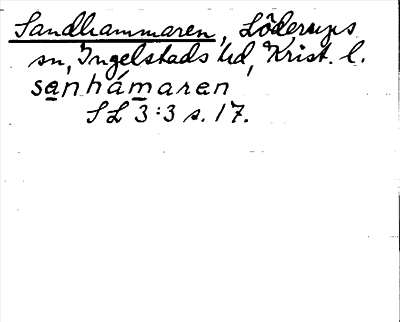 Sandhammaren, Löderups
sn, Ingelstads hd, Krist. l.
sanhámaren
SL 3:3 s. 17.